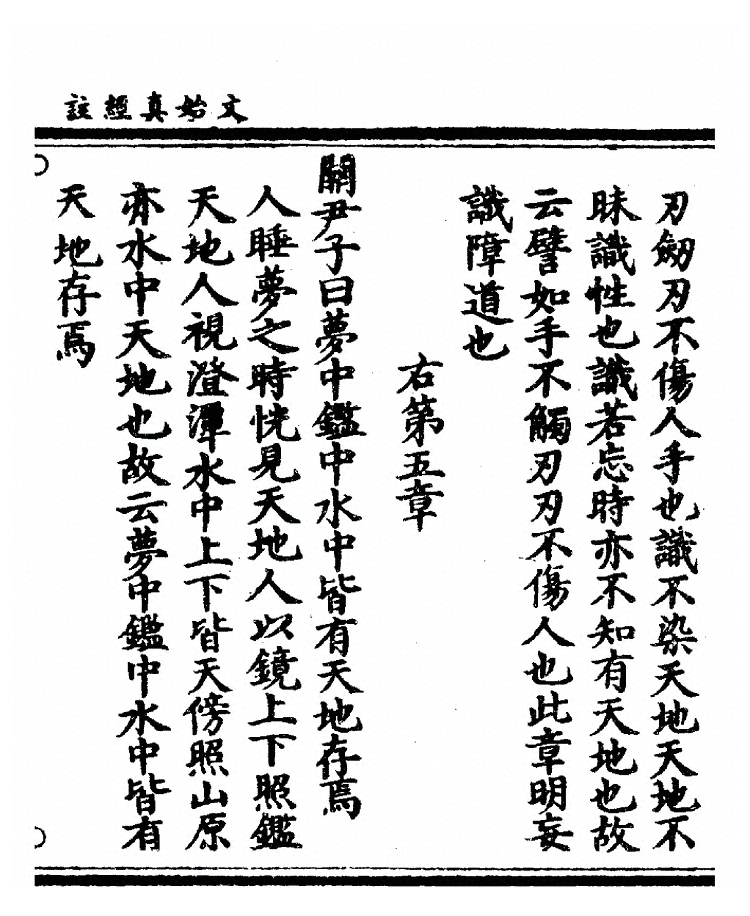 文始真經註
刃劒刃不傷人手也識不染天地天地不
昧識性也識若忘時亦不知有天地也故
云譬如手不觸刃刃不傷人也此章明妄
識障道也
右第五章
關尹子曰夢中鑑中水中皆有天地存焉
人睡夢之時恍見天地人以鏡上下照鑑
天地人視澄潭水中上下皆天傍照山原
亦水中天地也故云夢中鑑中水中皆有
天地存焉